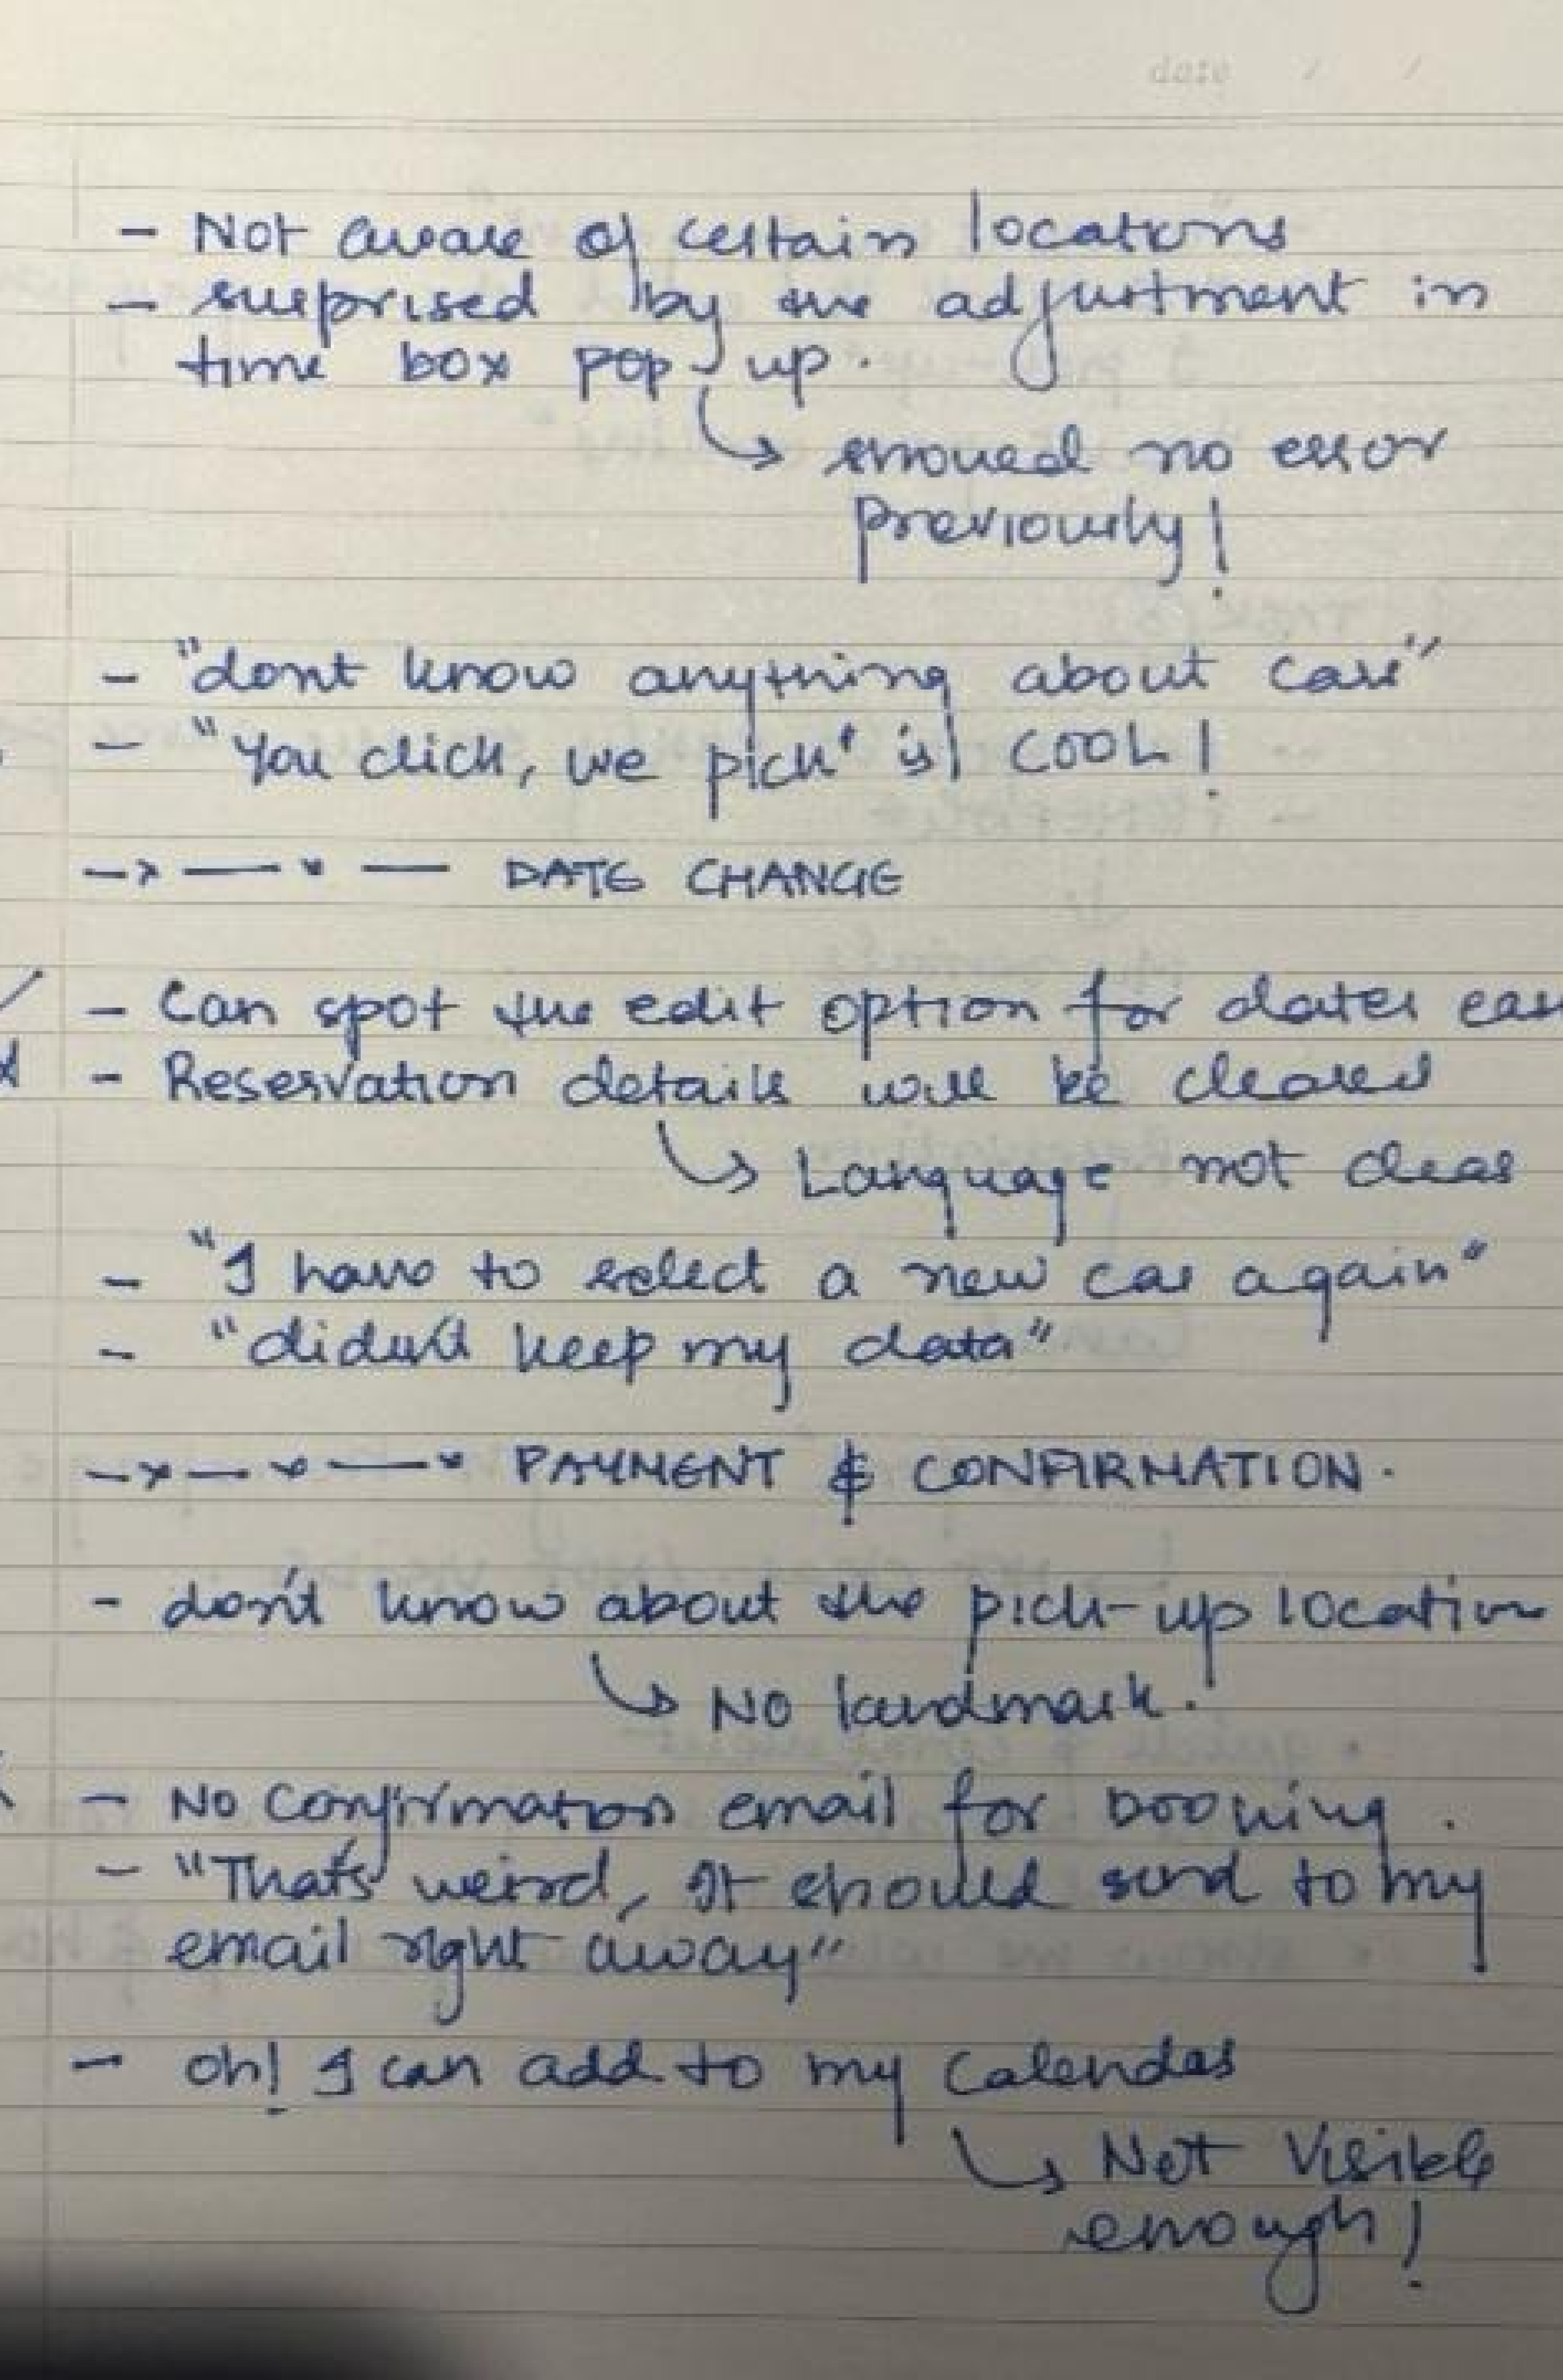 date / /
- Not aware of certain locations
- surprised by the adjustment in
time box pop-up.
↳ showed no error
previously!
- "dont know anything about cars"
- "You click, we pick" is COOL!
DATE CHANGE
- Can spot the edit option for dates
- Reservation details will be cleared
↳ Language not clear
- "I have to select a new car again"
- "didn't keep my data"
PAYMENT & CONFIRMATION.
- don't know about the pick-up location
↳ No landmark.
- No Confirmation email for booking.
- "That's weird, It should send to my
email right away"
- oh! I can add to my Calendar
↳ Not Visible
enough!